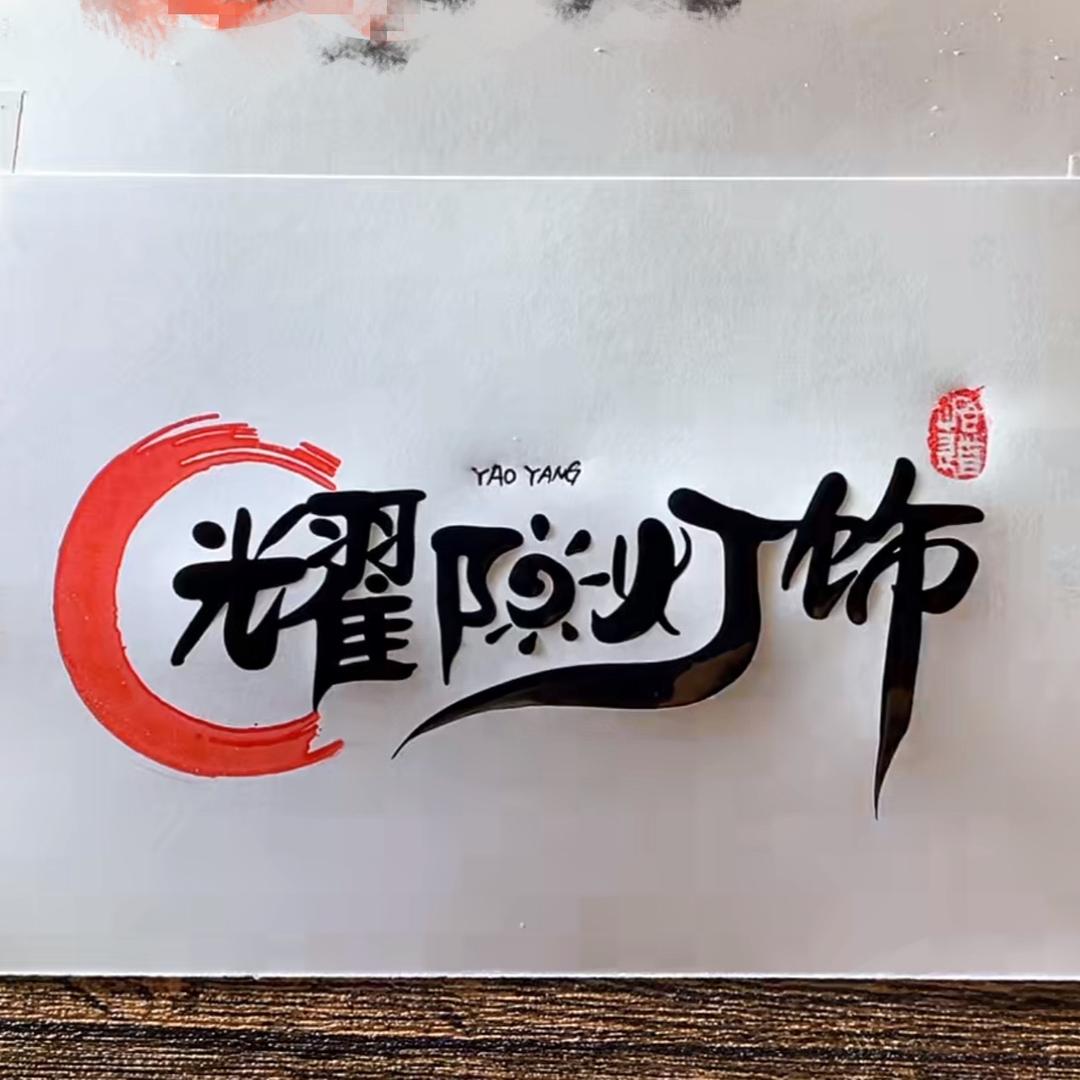 YAO YANG
耀阳灯饰